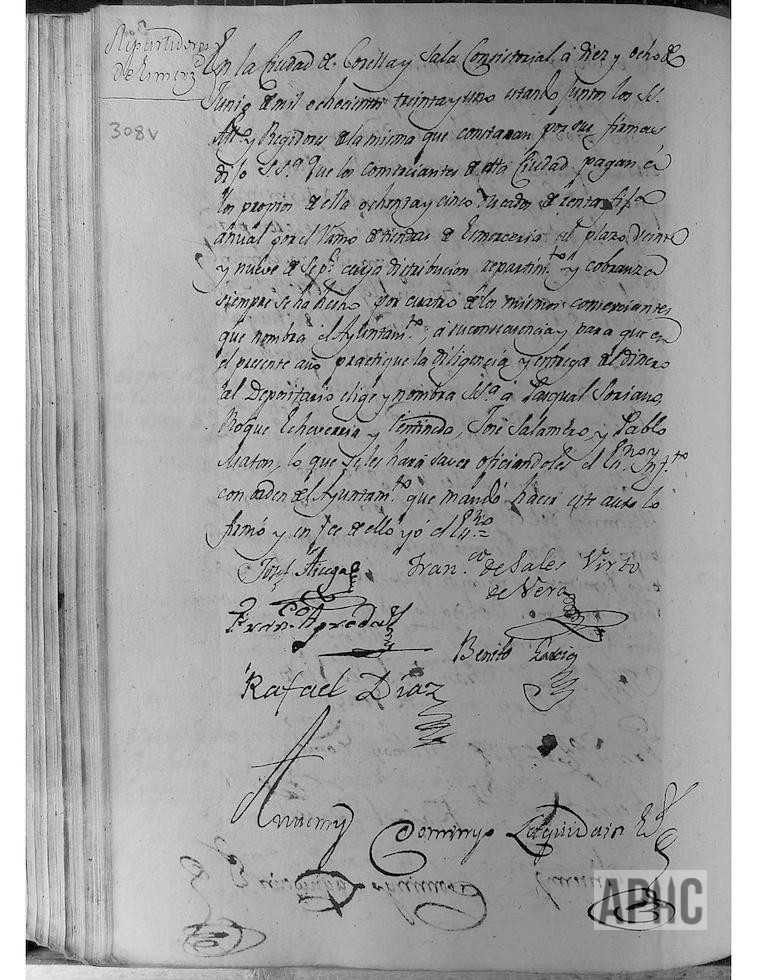 Repartidores
de Emerz.ª
308v
En la Ciudad de Corella y Sala Consistorial à diez y ocho de
Junio de mil ochocientos treinta y uno estando Juntos los SS.
Alc.e y Regidores de la misma que constaran por sus firmas
dijo S.S.ª que los comerciantes de esta Ciudad pagan à
los propios de ella ochenta y cinco ducados de renta fija
anual por el Ramo de tiendas de Esmerceria el plazo veinte
y nueve de Sep.e cuya distribucion repartim.to y cobranza
siempre se ha hecho por cuatro de los mismos comerciantes
que nombra el Ayuntam.to, à su consecuencia y para que en
el presente año practique la diligencia y entrega del dinero
al Depositario elige y nombra SS.ª à Pasqual Soriano,
Roque Echeverria y José Salambro, y Pablo
Maton, lo que se les hará saver oficiandoles el
con orden del Ayuntam.to que mandó hacer este auto lo
firmó y en fee de ello yó el Es.no =
José Fran.co de Sales Virto
de Vera
Fran.co Apredal
Benito Garcia
Rafael Diaz
Ante mi
Domingo
APHC